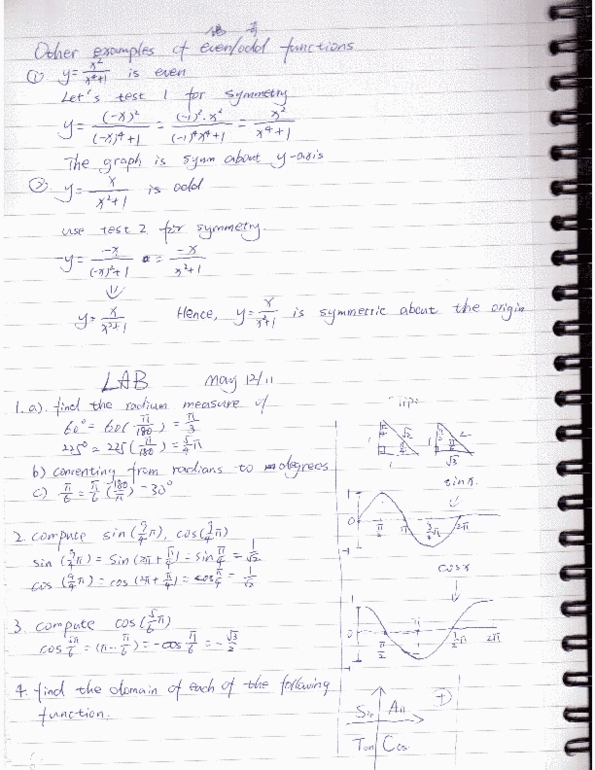 偶 奇
Other examples of even/odd functions
① y = x²/(x⁴+1) is even
Let's test 1 for symmetry
y = (-x)²/((-x)⁴+1) = (-1)²·x²/((-1)⁴x⁴+1) = x²/(x⁴+1)
The graph is symm about y-axis
② y = x/(x²+1) is odd
use test 2 for symmetry.
-y = -x/((-x)²+1) = -x/(x²+1)
⇓
y = x/(x²+1) Hence, y = x/(x²+1) is symmetric about the origin
LAB May 12/11
1. a). find the radium measure of
60° = 60(π/180) = π/3
225° = 225(π/180) = 5/4 π
b) conventing from radians to degrees
c) π/6 = π/6 (180/π) = 30°
2. compute sin(9/4 π), cos(9/4 π)
sin(9/4 π) = sin(2π + π/4) = sin π/4 = 1/√2
cos(9/4 π) = cos(2π + π/4) = cos π/4 = 1/√2
3. compute cos(5/6 π)
cos 5π/6 = (π - π/6) = -cos π/6 = -√3/2
4. find the domain of each of the following
function.
Trips
√2
1
1
2
√3
sin x.
1
0
-1
π/2
π
3/2 π
2π
cos x
1
0
-1
π/2
π
3/2 π
2π
Sin All
Tan Cos
+